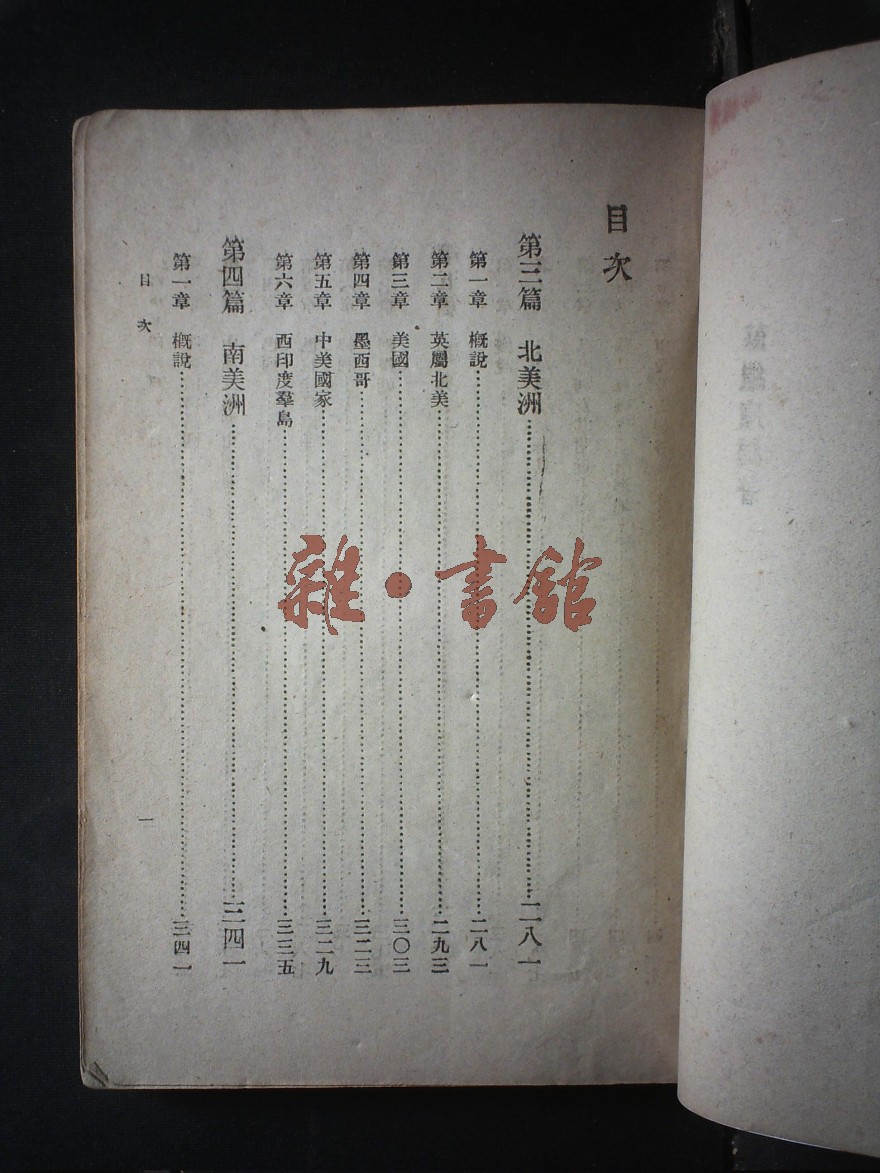 目次
第三篇 北美洲……二八一
第一章 概說……二八一
第二章 英屬北美……二九三
第三章 美國……三〇三
第四章 墨西哥……三二三
第五章 中美國家……三二九
第六章 西印度羣島……三三五
第四篇 南美洲……三四一
第一章 概說……三四一
目次 一
雜·書館